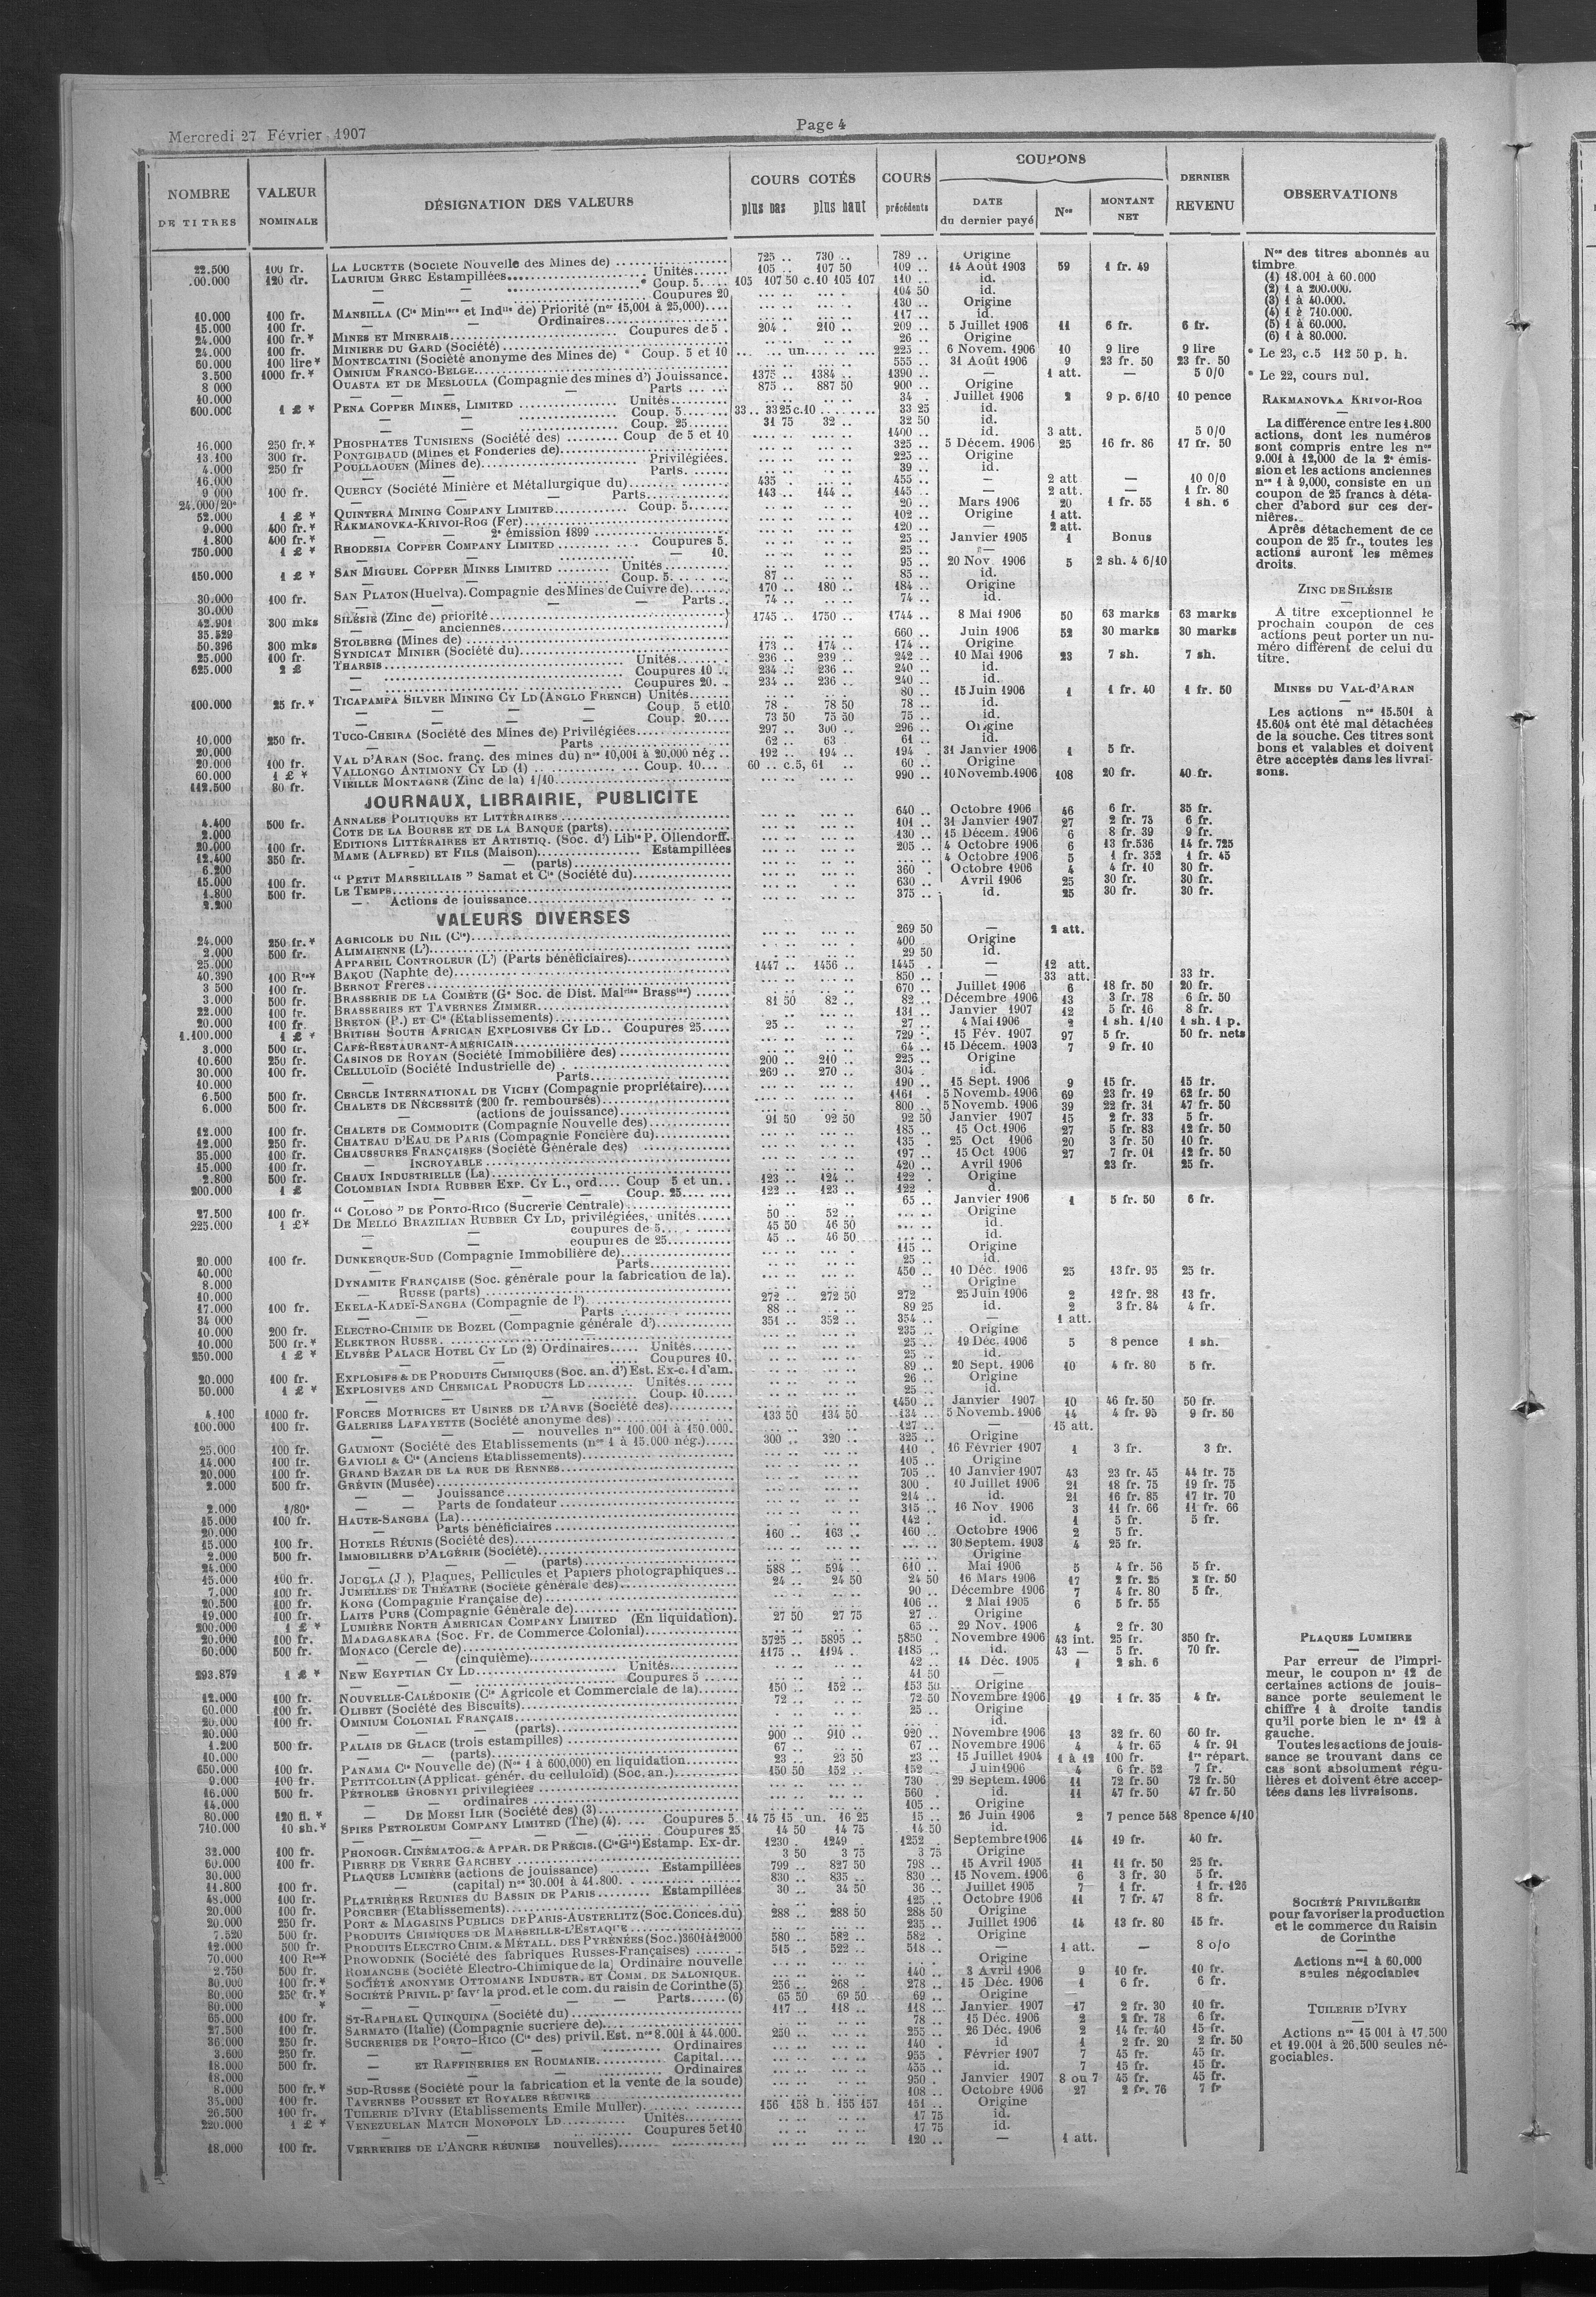 Mercredi 27 Février 1907
Page 4
NOMBRE DE TITRES | VALEUR NOMINALE | DÉSIGNATION DES VALEURS | COURS COTÉS plus bas plus haut | COURS précédents | COUPONS DATE du dernier payé | Nos | MONTANT NET | DERNIER REVENU | OBSERVATIONS
22.500 100 fr. LA LUCETTE (Société Nouvelle des Mines de) 725 .. 730 .. 789 .. Origine
.00.000 120 dr. LAURIUM GREC Estampillées Unités 105 .. 107 50 109 .. 14 Août 1903 59 1 fr. 49
— — * Coup. 5 105 107 50 c.10 105 107 110 .. id.
— — Coupures 20 104 50 id.
10.000 100 fr. MANSILLA (Cie Minière et Indus de) Priorité (nos 15,001 à 25,000) 130 .. Origine
15.000 100 fr. — — Ordinaires 117 .. id.
24.000 100 fr.* MINES ET MINERAIS Coupures de 5 204 . 210 .. 209 .. 5 Juillet 1906 11 6 fr. 6 fr.
24.000 100 fr. MINIERE DU GARD (Société) 26 .. Origine
60.000 100 lire* MONTECATINI (Société anonyme des Mines de) * Coup. 5 et 10 un 225 .. 6 Novem. 1906 10 9 lire 9 lire
3.500 1000 fr.* OMNIUM FRANCO-BELGE 555 .. 31 Août 1906 9 23 fr. 50 23 fr. 50
8 000 OUASTA ET DE MESLOULA (Compagnie des mines d') Jouissance. 1375 .. 1384 .. 1390 .. — 1 att. — 5 0/0
10.000 — — — Parts 875 .. 887 50 900 .. Origine
600.000 1 £ * PENA COPPER MINES, LIMITED Unités 34 . Juillet 1906 2 9 p. 6/10 10 pence
— — Coup. 5 33 .. 33 25 c.10 33 25 id.
— — Coup. 25 31 75 32 .. 32 50 id.
16.000 250 fr.* PHOSPHATES TUNISIENS (Société des) Coup de 5 et 10 1400 .. id. 3 att. 5 0/0
13.100 300 fr. PONTGIBAUD (Mines et Fonderies de) 325 .. 5 Décem. 1906 25 16 fr. 86 17 fr. 50
4.000 250 fr POULLAOUEN (Mines de) Privilégiées. 225 .. Origine
16.000 Parts. 39 .. id.
9 000 100 fr. QUERCY (Société Minière et Métallurgique du) 435 . 455 .. — 2 att — 10 0/0
24.000/20e — — Parts 143 .. 144 .. 145 .. — 2 att. — 1 fr. 80
52.000 1 £ * QUINTERA MINING COMPANY LIMITED Coup. 5 20 .. Mars 1906 20 1 fr. 55 1 sh. 6
9.000 400 fr.* RAKMANOVKA-KRIVOI-ROG (Fer) 102 .. Origine 1 att.
1.800 400 fr.* — — 2e émission 1899 120 .. — 2 att.
750.000 1 £ * RHODESIA COPPER COMPANY LIMITED Coupures 5. 25 .. Janvier 1905 1 Bonus
— — 10. 25 .. —
150.000 1 £ * SAN MIGUEL COPPER MINES LIMITED Unités 95 .. 20 Nov. 1906 5 2 sh. 4 6/10
— — Coup. 5 87 .. 85 .. id.
30.000 100 fr. SAN PLATON (Huelva). Compagnie des Mines de Cuivre de) 170 .. 180 .. 184 .. Origine
30.000 — — — Parts 74 .. 74 .. id.
42.901 300 mks SILÉSIE (Zinc de) priorité 1745 .. 1750 .. 1744 .. 8 Mai 1906 50 63 marks 63 marks
35.529 — — anciennes
50.396 300 mks STOLBERG (Mines de) 660 .. Juin 1906 52 30 marks 30 marks
25.000 100 fr. SYNDICAT MINIER (Société du) 173 .. 174 .. 174 .. Origine
625.000 2 £ THARSIS Unités 236 .. 239 .. 242 .. 10 Mai 1906 23 7 sh. 7 sh.
— Coupures 10 234 .. 236 .. 240 .. id.
— Coupures 20. 234 .. 236 .. 240 .. id.
100.000 25 fr.* TICAPAMPA SILVER MINING CY LD (ANGLO FRENCH) Unités 80 .. 15 Juin 1906 1 1 fr. 40 1 fr. 50
— — — Coup. 5 et 10 78 . 78 50 78 .. id.
— — — Coup. 20 73 50 75 50 75 .. id.
10.000 250 fr. TUCO-CHEIRA (Société des Mines de) Privilégiées 297 .. 300 .. 296 .. Origine
20.000 — — Parts 62 .. 63 61 .. id.
20.000 100 fr. VAL D'ARAN (Soc. franç. des mines du) nos 10,001 à 20,000 nég 192 .. 194 .. 194 . 31 Janvier 1906 1 5 fr.
60.000 1 £ * VALLONGO ANTIMONY CY LD (1) Coup. 10 60 .. c.5, 61 .. 60 .. Origine
112.500 80 fr. VIEILLE MONTAGNE (Zinc de la) 1/10 990 .. 10 Novemb. 1906 108 20 fr. 40 fr.
JOURNAUX, LIBRAIRIE, PUBLICITE
4.400 500 fr. ANNALES POLITIQUES ET LITTÉRAIRES 640 .. Octobre 1906 46 6 fr. 35 fr.
2.000 COTE DE LA BOURSE ET DE LA BANQUE (parts) 101 .. 31 Janvier 1907 27 2 fr. 73 6 fr.
20.000 100 fr. EDITIONS LITTÉRAIRES ET ARTISTIQ. (Soc. d') Libie P. Ollendorff. 130 .. 15 Décem. 1906 6 8 fr. 39 9 fr.
12.400 350 fr. MAME (ALFRED) ET FILS (Maison) Estampillées 205 .. 4 Octobre 1906 6 13 fr. 536 14 fr. 725
6.200 — (parts) 4 Octobre 1906 5 1 fr. 352 1 fr. 45
15.000 100 fr. “ PETIT MARSEILLAIS ” Samat et Cie (Société du) 360 . Octobre 1906 4 4 fr. 10 30 fr.
1.800 500 fr. LE TEMPS 630 .. Avril 1906 25 30 fr. 30 fr.
2.200 — Actions de jouissance 375 .. id. 25 30 fr. 30 fr.
VALEURS DIVERSES
24.000 250 fr.* AGRICOLE DU NIL (Cie) 269 50 — 2 att.
2.000 500 fr. ALIMAIENNE (L') 400 Origine
25.000 APPAREIL CONTROLEUR (L') (Parts bénéficiaires) 29 50 id.
40.390 100 Rses* BAKOU (Naphte de) 1447 .. 1456 .. 1445 . — 12 att.
3 500 100 fr. BERNOT FRÈRES 850 .. — 33 att. 33 fr.
3.000 500 fr. BRASSERIE DE LA COMÈTE (Ge Soc. de Dist. Malries Brassies) 670 .. Juillet 1906 6 18 fr. 50 20 fr.
22.000 100 fr. BRASSERIES ET TAVERNES ZIMMER 81 50 82 .. 82 .. Décembre 1906 13 3 fr. 78 6 fr. 50
20.000 100 fr. BRETON (P.) ET Cie (Etablissements) 131 .. Janvier 1907 12 5 fr. 16 8 fr.
1.100.000 1 £ * BRITISH SOUTH AFRICAN EXPLOSIVES CY LD Coupures 25 25 .. 27 .. 4 Mai 1906 2 1 sh. 1/10 1 sh. 1 p.
3.000 500 fr. CAFÉ-RESTAURANT-AMÉRICAIN 729 . 15 Fév. 1907 97 5 fr. 50 fr. nets
10.600 250 fr. CASINOS DE ROYAN (Société Immobilière des) 64 .. 15 Décem. 1903 7 9 fr. 10
30.000 100 fr. CELLULOÏD (Société Industrielle de) 200 .. 210 .. 225 .. Origine
10.000 — Parts 269 .. 270 .. 304 . id.
6.500 500 fr. CERCLE INTERNATIONAL DE VICHY (Compagnie propriétaire) 190 .. 15 Sept. 1906 9 15 fr. 15 fr.
6.000 500 fr. CHALETS DE NÉCESSITÉ (200 fr. remboursés) 1161 . 5 Novemb. 1906 69 23 fr. 19 62 fr. 50
— (actions de jouissance) 800 .. 5 Novemb. 1906 39 22 fr. 31 47 fr. 50
12.000 100 fr. CHALETS DE COMMODITE (Compagnie Nouvelle des) 91 50 92 50 92 50 Janvier 1907 15 2 fr. 33 5 fr.
12.000 250 fr. CHATEAU D'EAU DE PARIS (Compagnie Foncière du) 185 .. 15 Oct. 1906 27 5 fr. 83 12 fr. 50
35.000 100 fr. CHAUSSURES FRANÇAISES (Société Générale des) 135 . 25 Oct 1906 20 3 fr. 50 10 fr.
15.000 100 fr. — INCROYABLE 197 .. 15 Oct 1906 27 7 fr. 01 12 fr. 50
2.800 500 fr. CHAUX INDUSTRIELLE (La) 420 .. Avril 1906 23 fr. 25 fr.
200.000 1 £ COLOMBIAN INDIA RUBBER EXP. CY L., ord Coup 5 et un 123 .. 124 .. 122 .. Origine
Coup. 25 122 .. 123 .. 122 .. d.
27.500 100 fr. “ COLOSO ” DE PORTO-RICO (Sucrerie Centrale) 65 .. Janvier 1906 1 5 fr. 50 6 fr.
225.000 1 £* DE MELLO BRAZILIAN RUBBER CY LD, privilégiées, unités 50 .. 52 .. Origine
— — coupures de 5 45 50 46 50 id.
— — coupures de 25 45 .. 46 50 id.
20.000 100 fr. DUNKERQUE-SUD (Compagnie Immobilière de) 115 .. Origine
40.000 — — Parts 25 .. id.
8.000 DYNAMITE FRANÇAISE (Soc. générale pour la fabrication de la). 450 .. 10 Déc. 1906 25 13 fr. 95 25 fr.
10.000 — RUSSE (parts) Origine
17.000 100 fr. EKELA-KADEÏ-SANGHA (Compagnie de l') 272 .. 272 50 272 25 Juin 1906 2 12 fr. 28 13 fr.
34 000 — — Parts 88 .. 89 25 id. 2 3 fr. 84 4 fr.
10.000 200 fr. ELECTRO-CHIMIE DE BOZEL (Compagnie générale d') 351 .. 352 .. 354 .. — 1 att.
10.000 500 fr.* ELEKTRON RUSSE 235 .. Origine
250.000 1 £ * ELYSÉE PALACE HOTEL CY LD (2) Ordinaires Unités 25 .. 19 Déc. 1906 5 8 pence 1 sh.
— — Coupures 10. 25 .. id.
20.000 100 fr. EXPLOSIFS & DE PRODUITS CHIMIQUES (Soc. an. d') Est. Ex-c. 1 d'am. 89 .. 20 Sept. 1906 10 4 fr. 80 5 fr.
50.000 1 £ * EXPLOSIVES AND CHEMICAL PRODUCTS LD Unités 26 .. Origine
— — Coup. 10 25 .. id.
4.100 1000 fr. FORCES MOTRICES ET USINES DE L'ARVE (Société des) 1450 .. Janvier 1907 10 46 fr. 50 50 fr.
100.000 100 fr. GALERIES LAFAYETTE (Société anonyme des) 133 50 134 50 134 .. 5 Novemb. 1906 14 4 fr. 95 9 fr. 50
— — nouvelles nos 100.001 à 150.000. 127 .. — 15 att.
25.000 100 fr. GAUMONT (Société des Etablissements (nos 1 à 15.000 nég.) 300 .. 320 .. 325 .. Origine
14.000 100 fr. GAVIOLI & Cie (Anciens Etablissements) 110 . 16 Février 1907 1 3 fr. 3 fr.
20.000 100 fr. GRAND BAZAR DE LA RUE DE RENNES 105 .. Origine
2.000 500 fr. GRÉVIN (Musée) 705 .. 10 Janvier 1907 43 23 fr. 45 44 fr. 75
— — Jouissance 300 . 10 Juillet 1906 21 18 fr. 75 19 fr. 75
2.000 1/80e — — Parts de fondateur 214 .. id. 21 16 fr. 85 17 fr. 70
15.000 100 fr. HAUTE-SANGHA (La) 315 .. 16 Nov 1906 3 11 fr. 66 11 fr. 66
20.000 — Parts bénéficiaires 142 . id. 1 5 fr. 5 fr.
15.000 100 fr. HOTELS RÉUNIS (Société des) 160 .. 163 .. 160 .. Octobre 1906 2 5 fr.
2.000 500 fr. IMMOBILIERE D'ALGÉRIE (Société) 30 Septem. 1903 4 25 fr.
24.000 — — (parts) Origine
15.000 100 fr. JOUGLA (J ), Plaques, Pellicules et Papiers photographiques 588 .. 594 .. 610 .. Mai 1906 5 4 fr. 56 5 fr.
7.000 100 fr. JUMELLES DE THÉATRE (Société générale des) 24 .. 24 50 24 50 16 Mars 1906 17 2 fr. 25 2 fr. 50
20.500 100 fr. KONG (Compagnie Française de) 90 .. Décembre 1906 7 4 fr. 80 5 fr.
19.000 100 fr. LAITS PURS (Compagnie Générale de) 106 .. 2 Mai 1905 6 5 fr. 55
200.000 1 £ * LUMIÈRE NORTH AMERICAN COMPANY LIMITED (En liquidation). 27 50 27 75 27 .. Origine
20.000 100 fr. MADAGASKARA (Soc. Fr. de Commerce Colonial) 65 .. 29 Nov. 1906 4 2 fr. 30
60.000 500 fr. MONACO (Cercle de) 5725 .. 5895 .. 5850 . Novembre 1906 43 int. 25 fr. 350 fr.
— — (cinquième) 1175 .. 1194 . 1185 .. id. 43 — 5 fr. 70 fr.
293.879 1 £ * NEW EGYPTIAN CY LD Unités 42 .. 14 Déc. 1905 1 2 sh. 6
— — Coupures 5 41 50 —
12.000 100 fr. NOUVELLE-CALÉDONIE (Cie Agricole et Commerciale de la) 150 .. 152 .. 153 50 Origine
60.000 100 fr. OLIBET (Société des Biscuits) 72 .. 72 50 Novembre 1906 19 1 fr. 35 4 fr.
20.000 100 fr. OMNIUM COLONIAL FRANÇAIS 25 .. Origine
20.000 — — (parts) id.
1.200 500 fr. PALAIS DE GLACE (trois estampilles) 900 .. 910 .. 920 .. Novembre 1906 13 32 fr. 60 60 fr.
10.000 — — (parts) 67 .. 67 .. Novembre 1906 4 4 fr. 65 4 fr. 91
650.000 100 fr. PANAMA Cie Nouvelle de) (Nos 1 à 600,000) en liquidation 23 .. 23 50 23 .. 15 Juillet 1904 1 à 12 100 fr. 1re répart.
9.000 100 fr. PETITCOLLIN (Applicat. génér. du celluloïd) (Soc. an.) 150 50 152 .. 152 .. Juin 1906 4 6 fr. 52 7 fr.
16.000 500 fr. PÉTROLES GROSNYI privilégiées 730 . 29 Septem. 1906 11 72 fr. 50 72 fr. 50
14.000 — — ordinaires 560 . id. 11 47 fr. 50 47 fr. 50
80.000 120 fl. * — DE MOESI ILIR (Société des) (3) 105 .. Origine
710.000 10 sh.* SPIES PETROLEUM COMPANY LIMITED (The) (4) Coupures 5. 14 75 15 un. 16 25 15 .. 26 Juin 1906 2 7 pence 548 8 pence 4/10
— — Coupures 25 14 50 14 75 14 50 id.
32.000 100 fr. PHONOGR. CINÉMATOG. & APPAR. DE PRÉCIS. (Cie Gle) Estamp. Ex-dr. 1230 . 1249 . 1252 . Septembre 1906 14 19 fr. 40 fr.
60.000 100 fr. PIERRE DE VERRE GARCHEY 3 50 3 75 3 75 Origine
30.000 PLAQUES LUMIÈRE (actions de jouissance) Estampillées 799 .. 827 50 798 .. 15 Avril 1905 11 11 fr. 50 25 fr.
11.800 100 fr. — (capital) nos 30.001 à 41.800. 830 .. 835 .. 830 .. 15 Novem. 1906 6 3 fr. 30 5 fr.
48.000 100 fr. PLATRIÈRES REUNIES DU BASSIN DE PARIS Estampillées 30 .. 34 50 36 .. Juillet 1905 7 1 fr. 1 fr. 125
20.000 100 fr. PORCHER (Etablissements) 125 .. Octobre 1906 11 7 fr. 47 8 fr.
20.000 250 fr. PORT & MAGASINS PUBLICS DE PARIS-AUSTERLITZ (Soc. Conces. du) 288 .. 288 50 288 50 Origine
7.520 500 fr. PRODUITS CHIMIQUES DE MARSEILLE-L'ESTAQUE 235 .. Juillet 1906 14 13 fr. 80 15 fr.
12.000 500 fr. PRODUITS ELECTRO CHIM. & MÉTALL. DES PYRÉNÉES (Soc.) 3601 à 12000 580 .. 582 .. 582 . Origine
70.000 100 Rses* PROWODNIK (Société des fabriques Russes-Françaises) 515 . 522 .. 518 .. — 1 att. — 8 o/o
2.750 500 fr. ROMANCHE (Société Electro-Chimique de la) Ordinaire nouvelle Origine
80.000 100 fr.* SOCIÉTÉ ANONYME OTTOMANE INDUSTR. ET COMM. DE SALONIQUE. 140 .. 3 Avril 1906 9 10 fr. 10 fr.
80.000 250 fr.* SOCIÉTÉ PRIVIL. pr favr la prod. et le com. du raisin de Corinthe (5) 256 .. 268 . 278 .. 15 Déc. 1906 1 6 fr. 6 fr.
80.000 * — — — Parts (6) 65 50 69 50 69 .. Origine
65.000 100 fr. ST-RAPHAEL QUINQUINA (Société du) 117 .. 118 .. 118 .. Janvier 1907 17 2 fr. 30 10 fr.
27.500 100 fr. SARMATO (Italie) (Compagnie sucrière de) 78 .. 15 Déc. 1906 2 2 fr. 78 6 fr.
36.000 250 fr. SUCRERIES DE PORTO-RICO (Cie des) privil. Est. nos 8.001 à 44.000. 250 .. 255 .. 26 Déc. 1906 2 14 fr. 40 15 fr.
3.600 250 fr. — — Ordinaires 140 . id 1 2 fr. 20 2 fr. 50
18.000 500 fr. — ET RAFFINERIES EN ROUMANIE Capital 955 . Février 1907 7 45 fr. 45 fr.
18.000 — — Ordinaires 455 .. id. 7 15 fr. 15 fr.
8.000 500 fr.* SUD-RUSSE (Société pour la fabrication et la vente de la soude) 950 . Janvier 1907 8 ou 7 45 fr. 45 fr.
35.000 100 fr. TAVERNES POUSSET ET ROYALES RÉUNIES 108 .. Octobre 1906 27 2 fr. 76 7 fr
26.500 100 fr. TUILERIE D'IVRY (Etablissements Emile Muller) 156 158 h. 155 157 151 .. Origine
220.000 1 £ * VENEZUELAN MATCH MONOPOLY LD Unités 17 75 id.
— — Coupures 5 et 10 17 75 id.
18.000 100 fr. VERRERIES DE L'ANCRE RÉUNIES nouvelles) 120 .. — 1 att.
Nos des titres abonnés au
timbre
(1) 18.001 à 60.000
(2) 1 à 200.000.
(3) 1 à 40.000.
(4) 1 à 710.000.
(5) 1 à 60.000.
(6) 1 à 80.000.
* Le 23, c.5 112 50 p. h.
* Le 22, cours nul.
RAKMANOVKA KRIVOI-ROG
La différence entre les 1.800
actions, dont les numéros
sont compris entre les nos
9.001 à 12,000 de la 2e émis-
sion et les actions anciennes
nos 1 à 9,000, consiste en un
coupon de 25 francs à déta-
cher d'abord sur ces der-
nières.
Après détachement de ce
coupon de 25 fr., toutes les
actions auront les mêmes
droits.
ZINC DE SILÉSIE
A titre exceptionnel le
prochain coupon de ces
actions peut porter un nu-
méro différent de celui du
titre.
MINES DU VAL-D'ARAN
Les actions nos 15.501 à
15.604 ont été mal détachées
de la souche. Ces titres sont
bons et valables et doivent
être acceptés dans les livrai-
sons.
PLAQUES LUMIERE
Par erreur de l'impri-
meur, le coupon no 12 de
certaines actions de jouis-
sance porte seulement le
chiffre 1 à droite tandis
qu'il porte bien le no 12 à
gauche.
Toutes les actions de jouis-
sance se trouvant dans ce
cas sont absolument régu-
lières et doivent être accep-
tées dans les livraisons.
SOCIÉTÉ PRIVILÉGIÉE
pour favoriser la production
et le commerce du Raisin
de Corinthe
Actions nos 1 à 60.000
seules négociables
TUILERIE D'IVRY
Actions nos 15 001 à 17.500
et 19.001 à 26.500 seules né-
gociables.